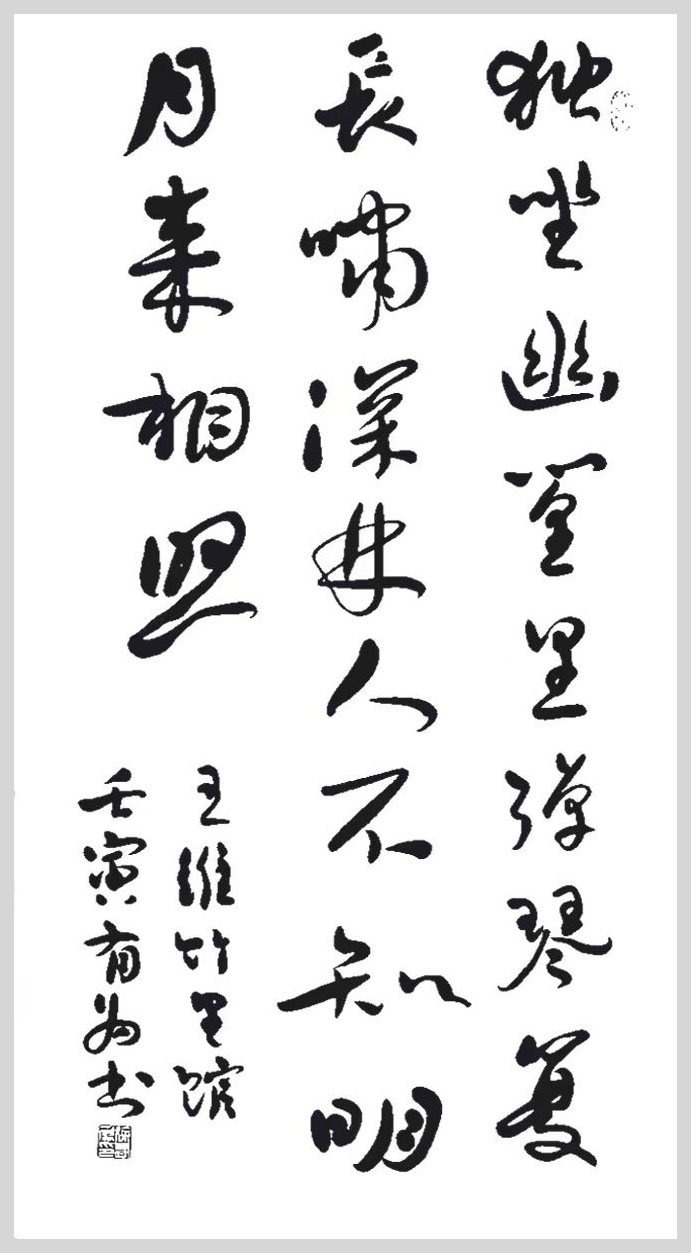 独坐幽篁里弹琴复
長啸深林人不知明
月来相照
王维竹里馆
壬寅有为书